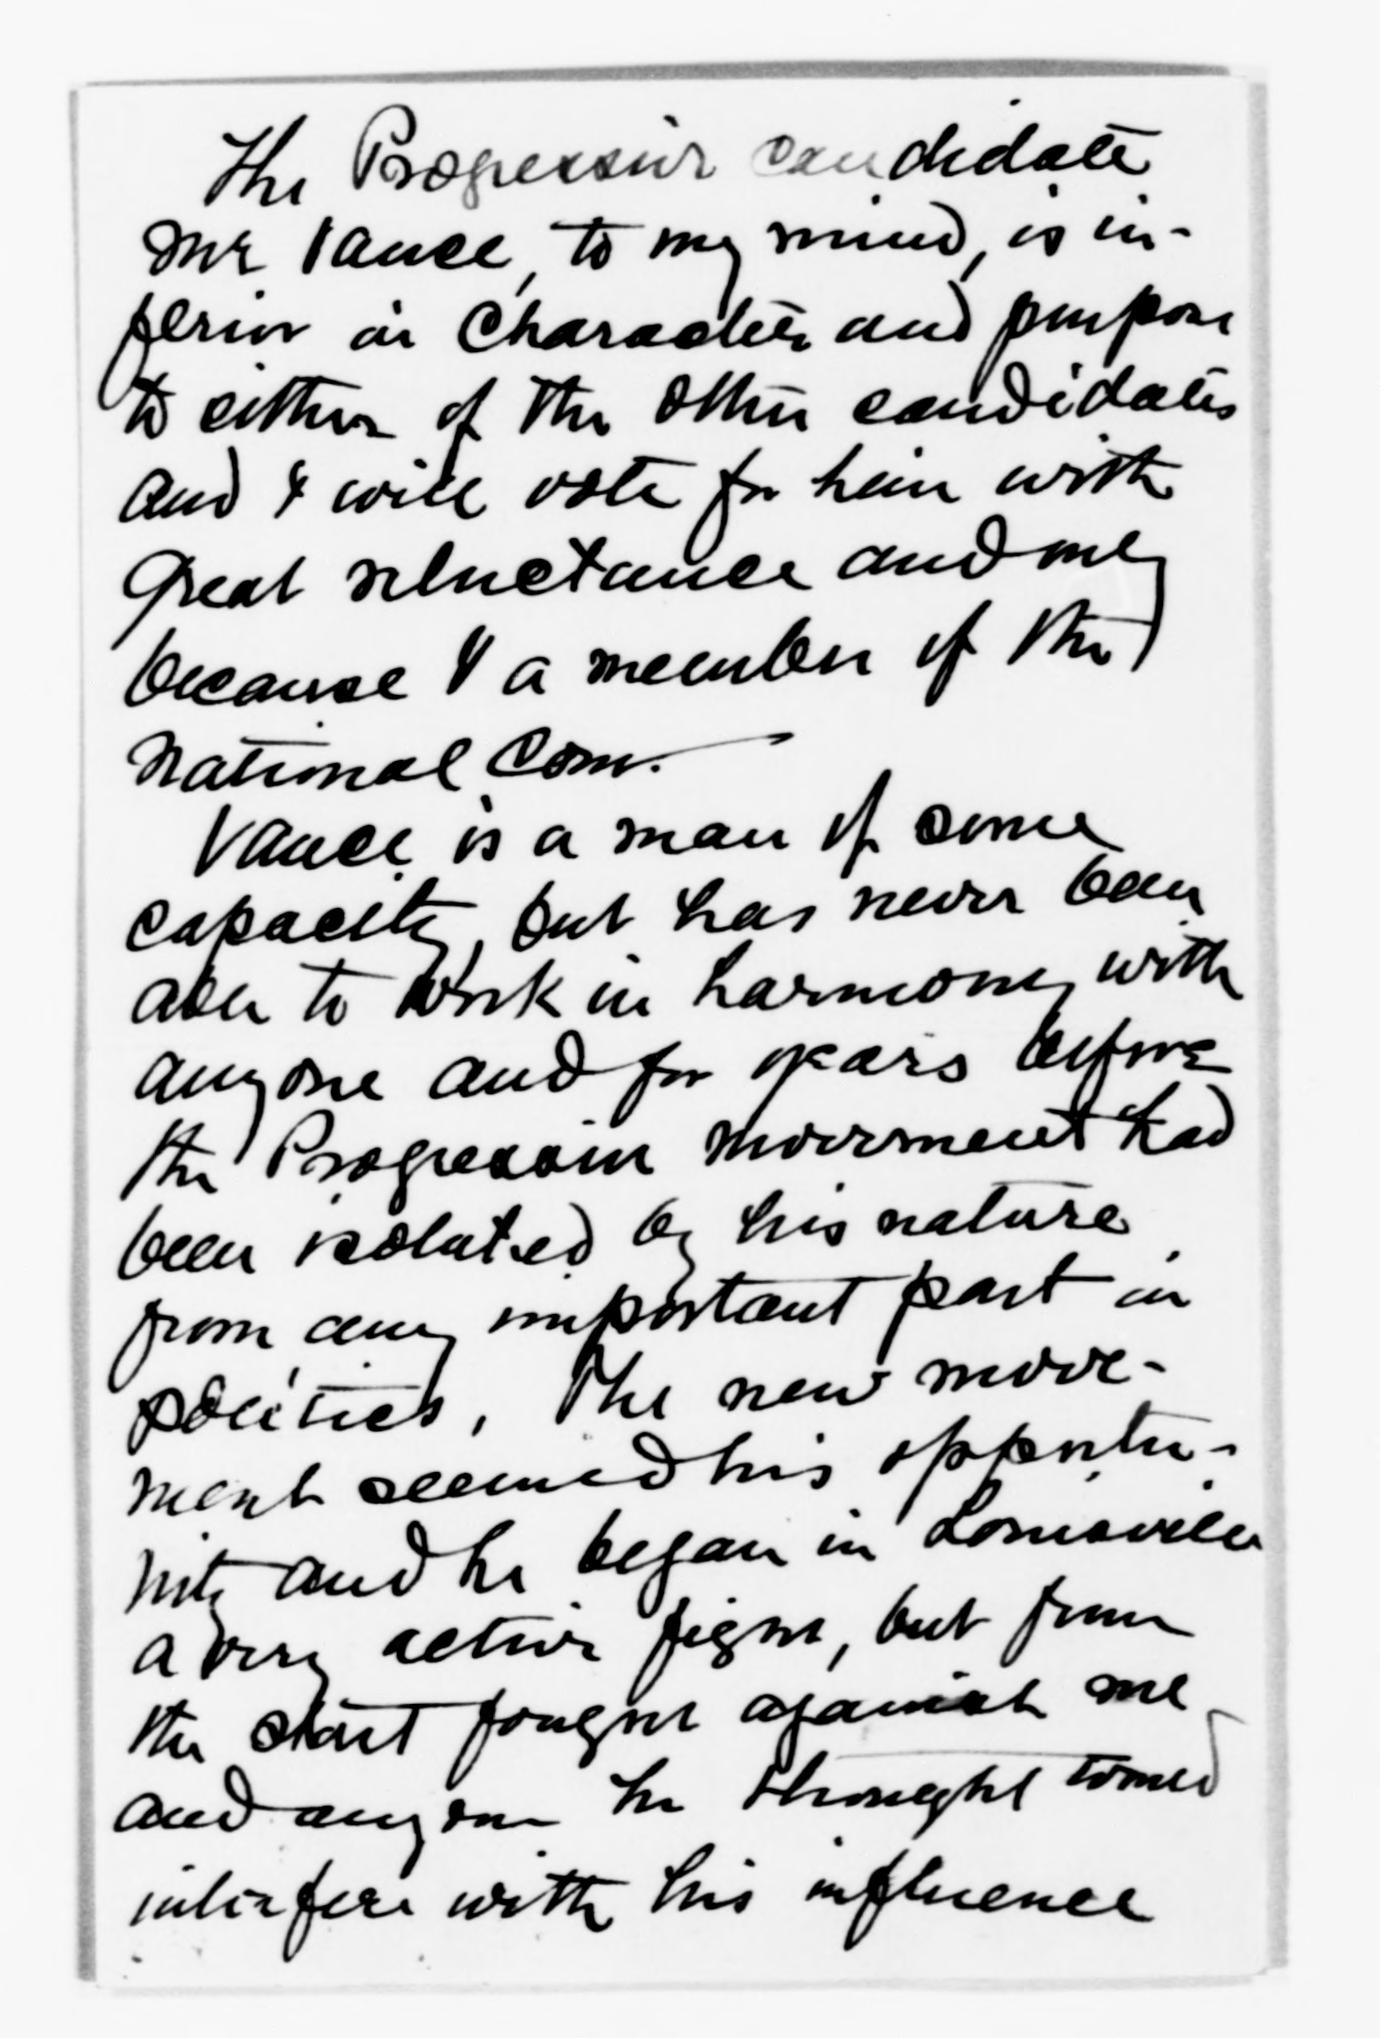 The Progressive candidate
Mr Vance, to my mind, is in-
ferior in Character and purpose
to either of the other candidates
and I will vote for him with
Great reluctance and only
because I a member of the
National Com.
Vance is a man of some
capacity, but has never been
able to work in harmony with
anyone and for years before
the Progressive movement had
been isolated by his nature
from any important part in
politics. The new move-
ment seemed his opportu-
nity and he began in Louisville
a very active fight, but from
the start fought against me
and anyone he thought
interfere with his influence